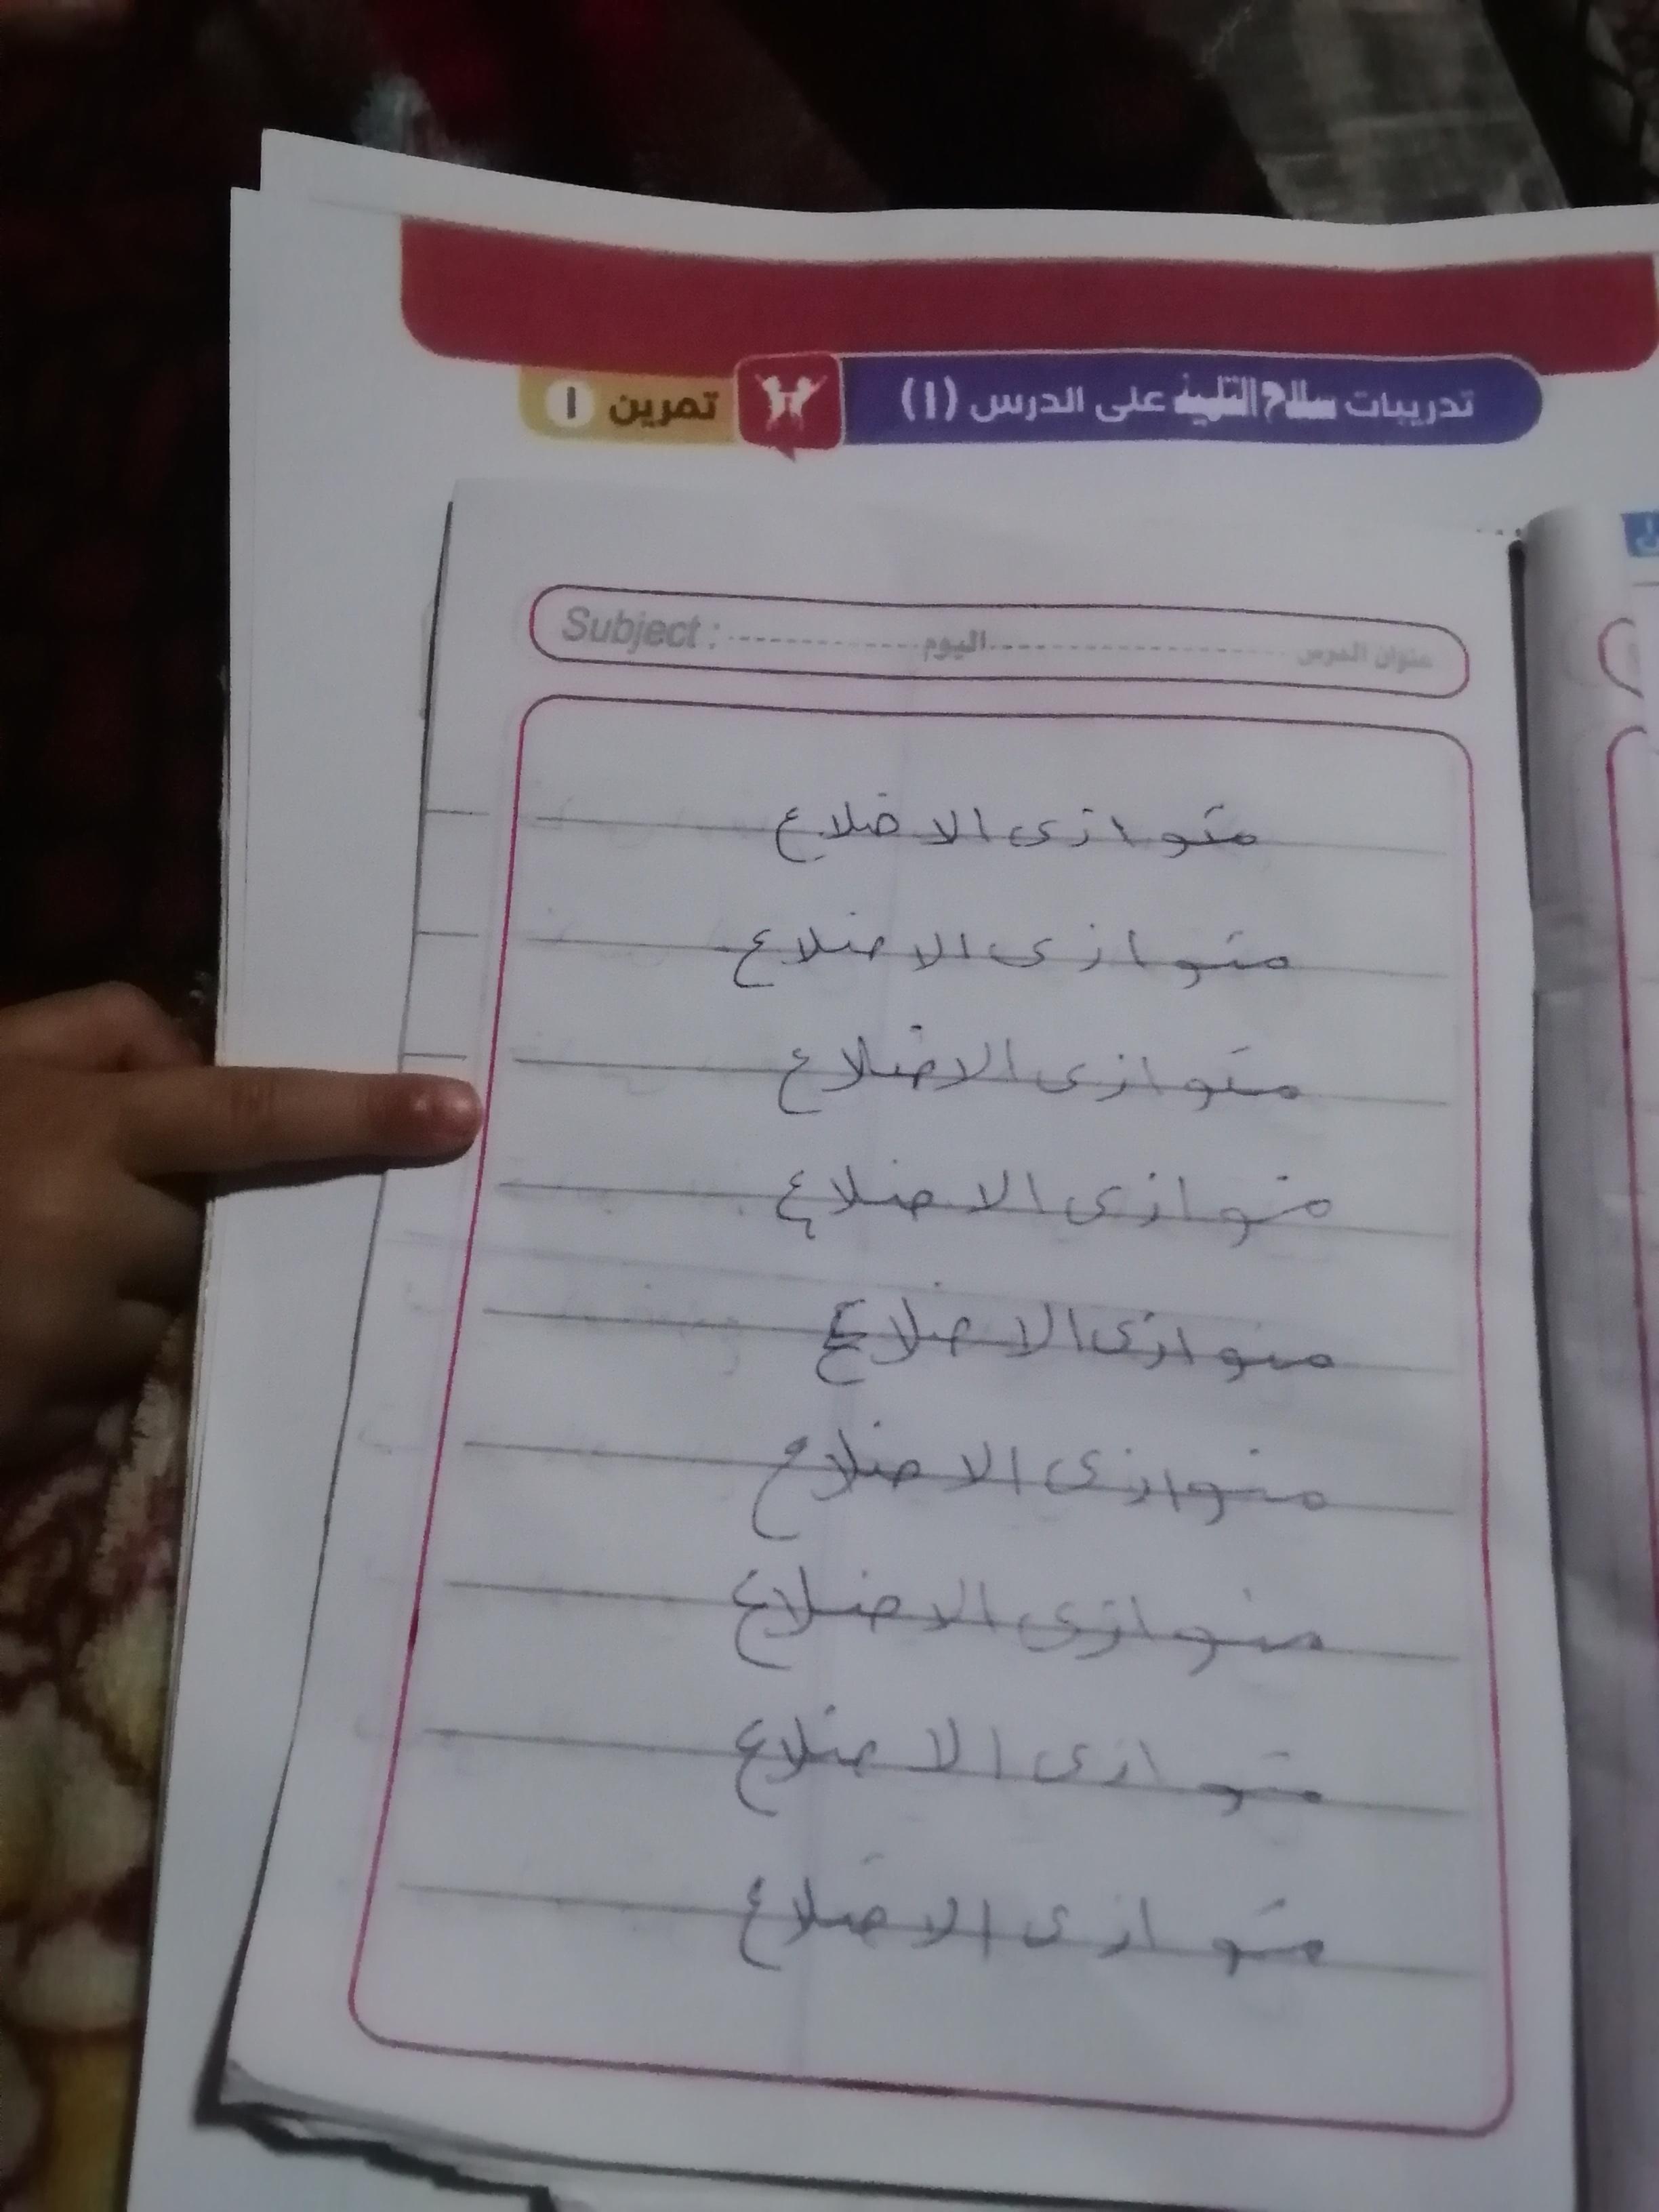 تدريبات سلاح التلميذ على الدرس (١) تمرين ١
عنوان الدرس اليوم Subject :
متوازى الاضلاع
متوازى الاضلاع
متوازى الاضلاع
متوازى الاضلاع
متوازى الاضلاع
متوازى الاضلاع
متوازى الاضلاع
متوازى الاضلاع
متوازى الاضلاع